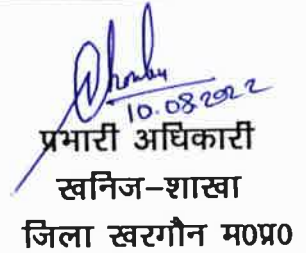 10.08.2022
प्रभारी अधिकारी
खनिज-शाखा
जिला खरगौन म०प्र०